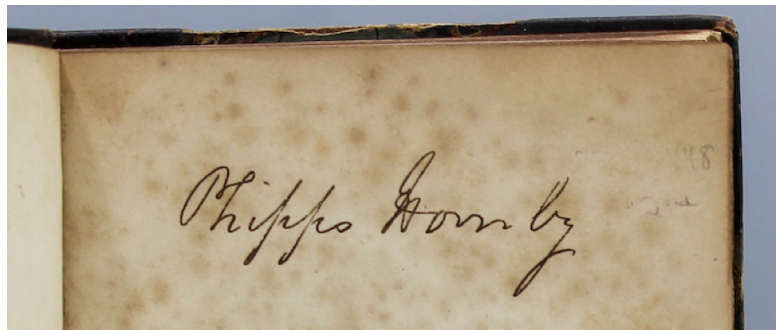 Phipps Hornby